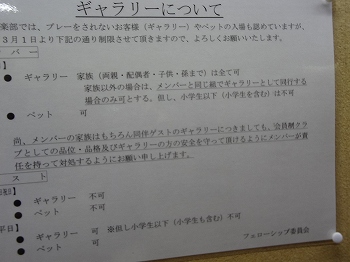 ギャラリーについて
楽部では、プレーをされないお客様（ギャラリー）やペットの入場も認めていますが、
３月１日より下記の通り制限させて頂きますので、よろしくお願いいたします。
バー
】
● ギャラリー 家族（両親・配偶者・子供・孫まで）は全て可
家族以外の場合は、メンバーと同じ組でギャラリーとして同行する
場合のみ可とする。但し、小学生以下（小学生を含む）は不可
● ペット 可
尚、メンバーの家族はもちろん同伴ゲストのギャラリーにつきましても、会員制クラ
ブとしての品位・品格及びギャラリーの方の安全を守って頂けるようにメンバーが責
任を持って対処するようにお願い申し上げます。
スト
● ギャラリー 不可
● ペット 不可
平日】
● ギャラリー 可 ※但し小学生以下（小学生も含む）不可
● ペット 可
フェローシップ委員会